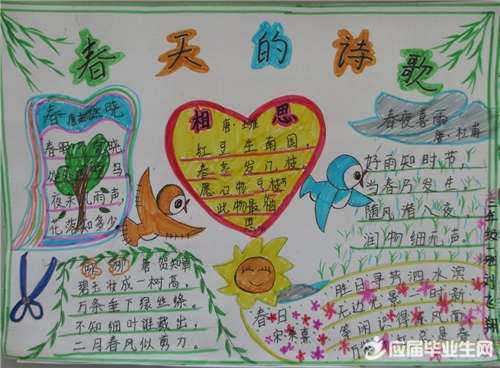 春天的诗歌
春晓
夜来风雨声,
花落知多少.
相思
唐·王维
红豆生南国,
春来发几枝
此物最相
思.
春夜喜雨
唐·杜甫
好雨知时节,
当春乃发生.
随风潜入夜
润物细无声.
咏柳 唐 贺知章
碧玉妆成一树高,
万条垂下绿丝绦.
不知细叶谁裁出,
二月春风似剪刀.
春日
宋 朱熹
胜日寻芳泗水滨
无边光景一时新
等闲识得东风面
三年级
应届毕业生网